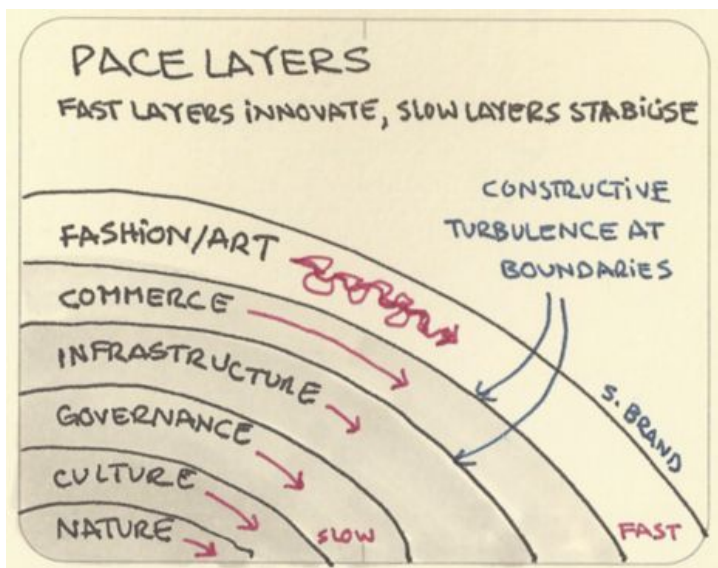 PACE LAYERS
FAST LAYERS INNOVATE, SLOW LAYERS STABILISE
CONSTRUCTIVE
TURBULENCE AT
BOUNDARIES
FASHION/ART
COMMERCE
INFRASTRUCTURE
GOVERNANCE
CULTURE
NATURE
SLOW
FAST
S. BRAND